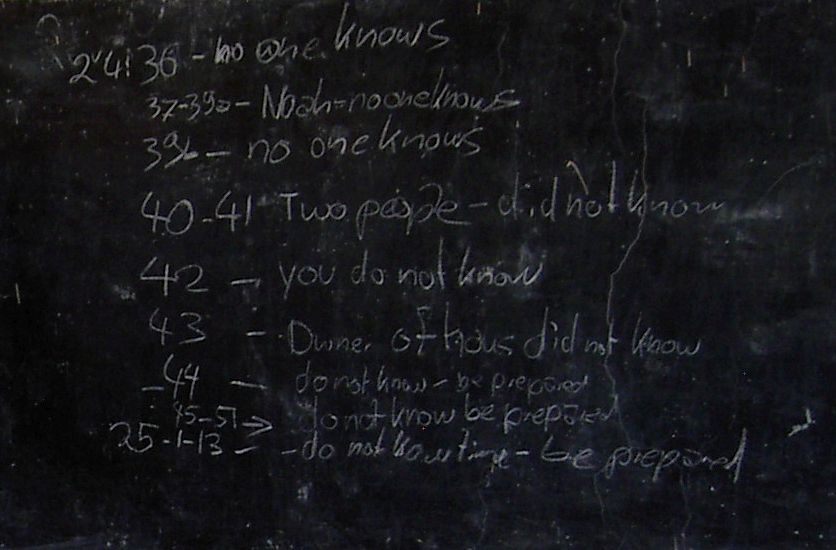 24:36 - no one knows
37-39a - Noah = no one knows
39b - no one knows
40-41 Two people - did not know
42 - you do not know
43 - Owner of hous did not know
- 44 - do not know - be prepared
45-51 > do not know be prepared
25-1-13 - - do not know time - be prepared